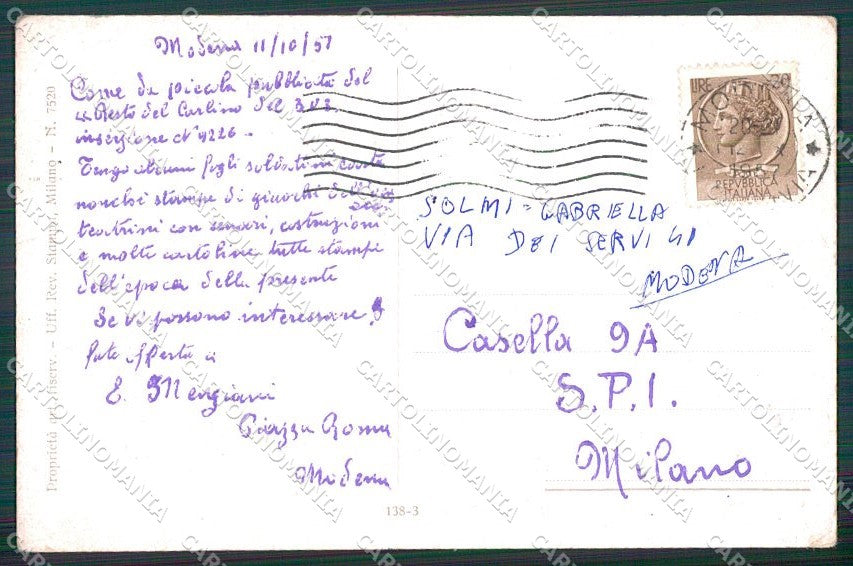 Modena 11/10/57
Come da piccola pubblicità del
"Resto del Carlino del 3 u.s.
inserzione N° 4226 -
Tengo alcuni fogli soldatini carta
nonchè stampe di giuochi dell'
teatrini con scenari, costruzioni
e molte cartoline tutte stampe
dell'epoca della presente
Se vi possono interessare
fate offerta a
E. Mengiani
Piazza Roma
Modena
Proprietà art. riserv. - Uff. Rev. Stampe, Milano - N. 7520
138-3
LIRE
REPVBBLICA
ITALIANA
SOLMI - GABRIELLA
VIA DEI SERVI 41
MODENA
Casella 9A
S.P.I.
Milano
CARTOLINOMANIA